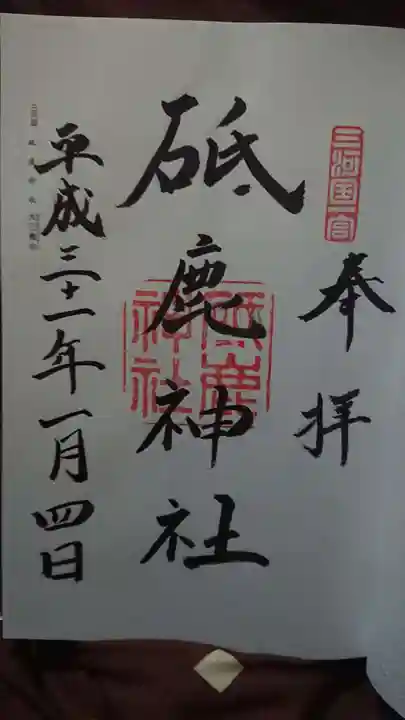 三河国一宮
奉拝
砥鹿神社
砥鹿神社
平成三十一年一月四日